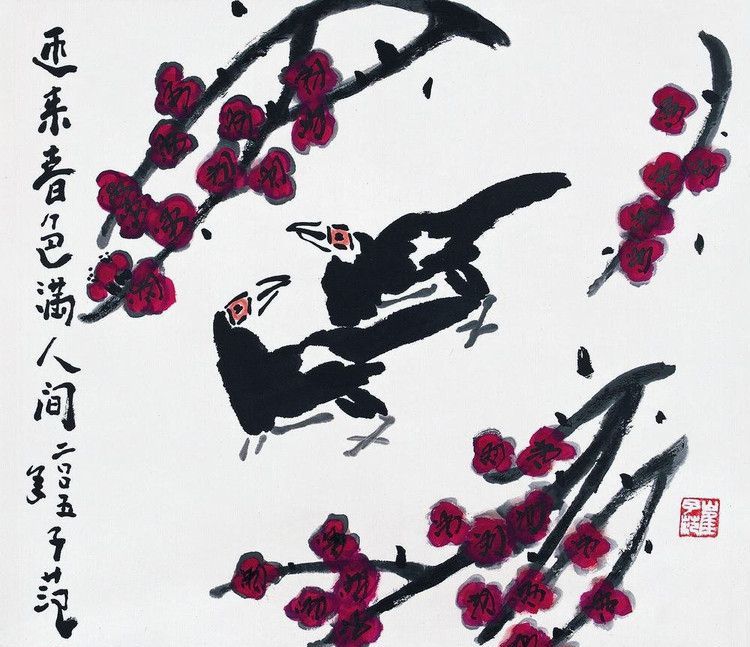 迎来春色满人间
二〇〇五年 子范
崔子范